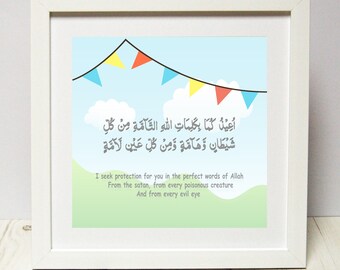 اُعِيْذُ كُمَا بِكَلِمَاتِ اللهِ التَّامَّةِ مِنْ كُلِّ
شَيْطَانٍ وَّهَامَّةٍ وَّمِنْ كُلِّ عَيْنٍ لَامَّةٍ
I seek protection for you in the perfect words of Allah
From the satan, from every poisonous creature
And from every evil eye